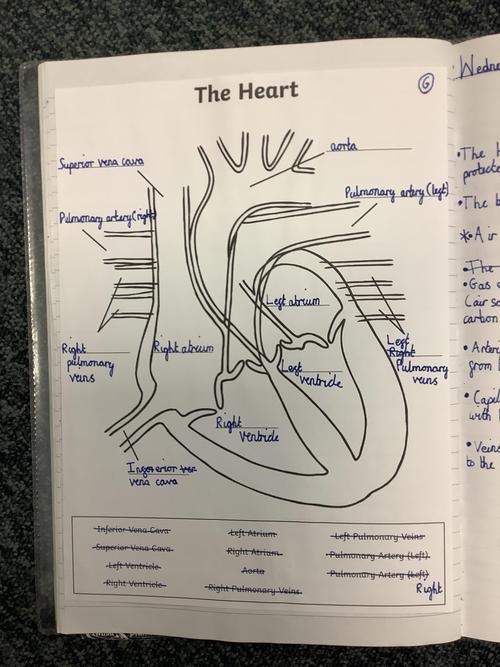 The Heart
6
aorta
Superior vena cava
Pulmonary artery (left)
Pulmonary artery (right)
Left atrium
Right atrium
Right
pulmonary
veins
Left
ventricle
Left
Right
Pulmonary
veins
Right
Ventricle
Inferior ver
vena cava
Inferior Vena Cava
Left Atrium
Left Pulmonary Veins
Superior Vena Cava
Right Atrium
Pulmonary Artery (Left)
Left Ventricle
Aorta
Pulmonary Artery (Left)
Right Ventricle
Right Pulmonary Veins
Right
Wedne
•The h
protecte
•The b
*•Air
•The
•Gas e
(air sa
carbon
•Arteri
from
•Capil
with
•Veins
to the